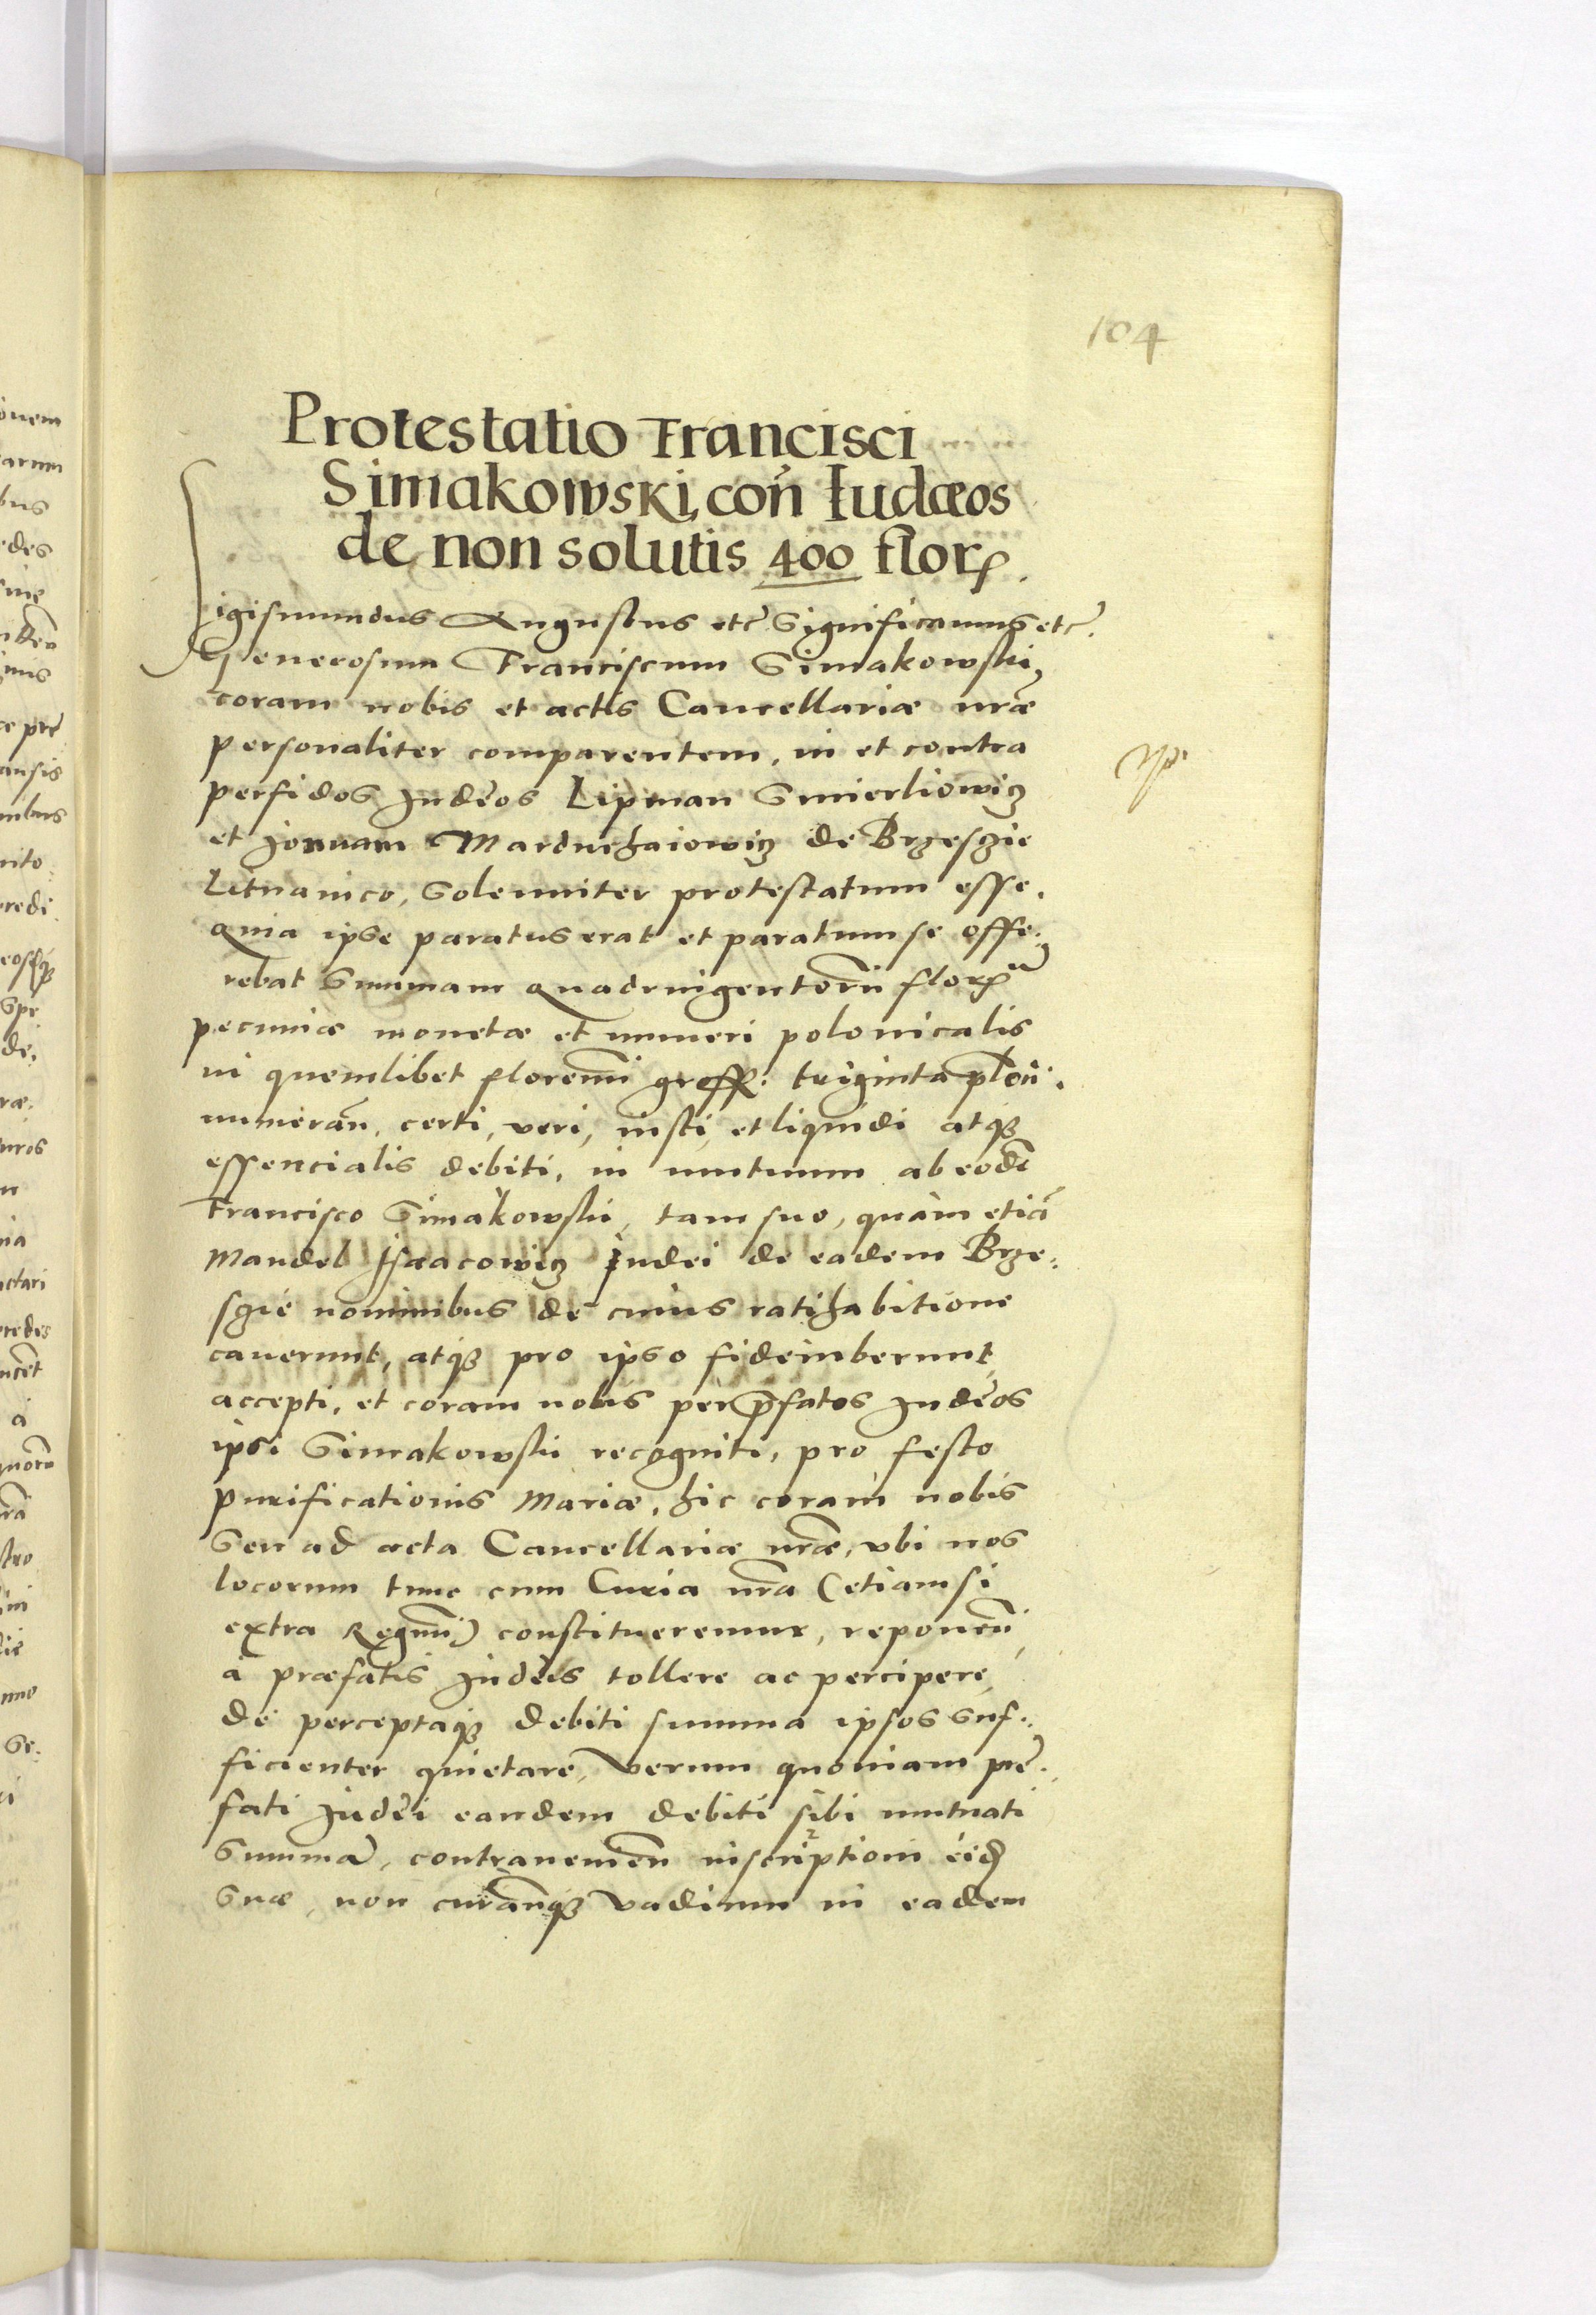 104
Protestatio Francisci
Simakowski, con̄ Iudæos
de non solutis 400 florꝝ.
Sigismundus Augustus etc̃ Significamus etc̃.
Generosum Franciscum Simakowski,
coram nobis et actis Cancellariæ nr̃æ
personaliter comparentem, in et contra
perfidos Judęos Lipman Smierliowicz
et Jonnam Marduchaiowicz de Brzesczie
Lituanico, Solenniter protestatum esse.
Quia ipse paratus erat et paratum se offe:
rebat Summam Quadringentorū florꝝ
pecuniæ monetæ et numeri polonicalis
in quemlibet florenū gross: triginta plōn:.
numeran̄, certi, veri, iusti, et liquidi atqꝫ
essencialis debiti, in mutuum ab eodē
Francisco Simakowski, tam suo, quàm etiā
Mandel Isaacowicz Iudei de eadem Brze:
sczie nominibus de cuius ratihabitione
cauerunt, atqꝫ pro ipso fideiuberunt,
accepti, et coram nobis per p̄fatos Judęos
ipsi Simakowski recogniti, pro festo
purificationis Mariæ, hic coram nobis
Seu ad acta Cancellariæ nr̃æ, vbi nos
locorum tunc cum Curia nr̃a (etiam si
extra Regnū) constitueremur, reponen̄,
à præfatis Judęis tollere ac percipere,
dé perceptaqꝫ debiti summa ipsos suf:
ficienter quietare, Verum quoniam prę:
fati Judęi eandem debiti sibi mutuati
Summā, contrauenien̄ inscriptioni eid̄
Suæ, non curan̄qꝫ vadium in eadem